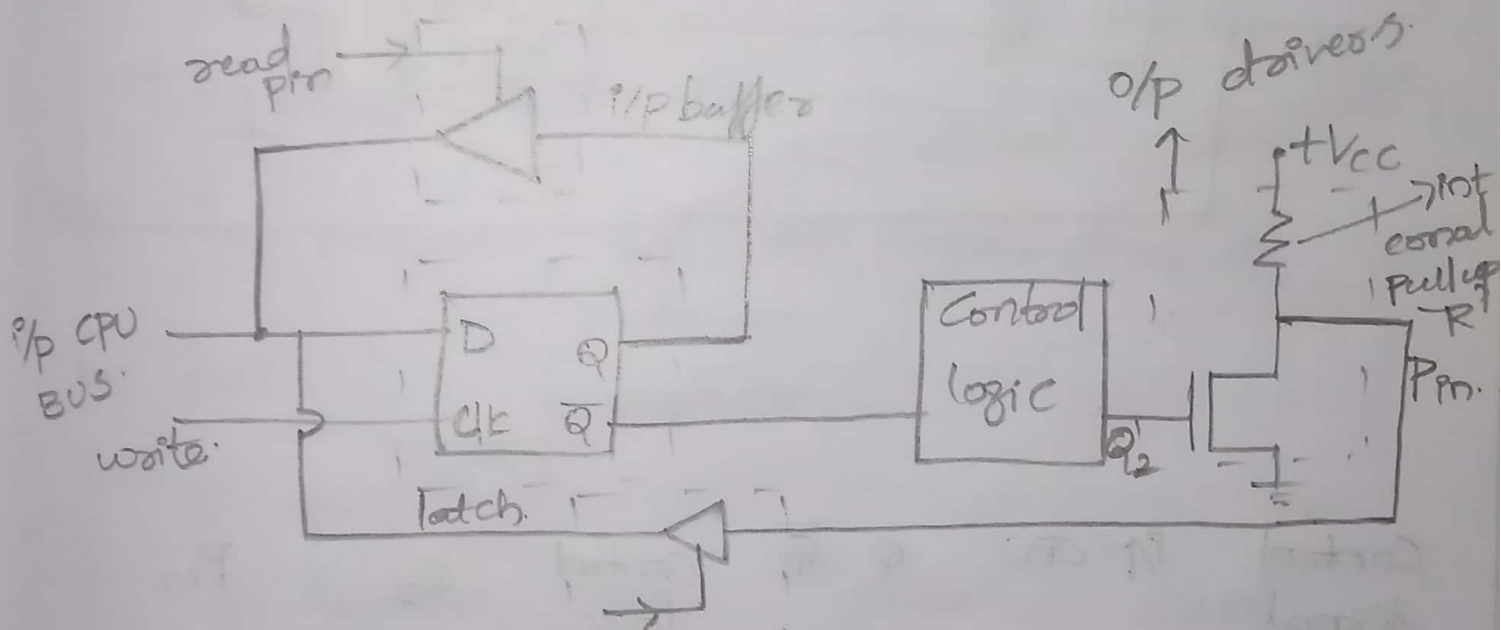 read
pin
i/p buffer
o/p drivers.
+Vcc
int
ernal
pullup
R
i/p CPU
BUS.
D
Q
Clk
Q̅
write.
Control
logic
Q2
Pin.
latch.